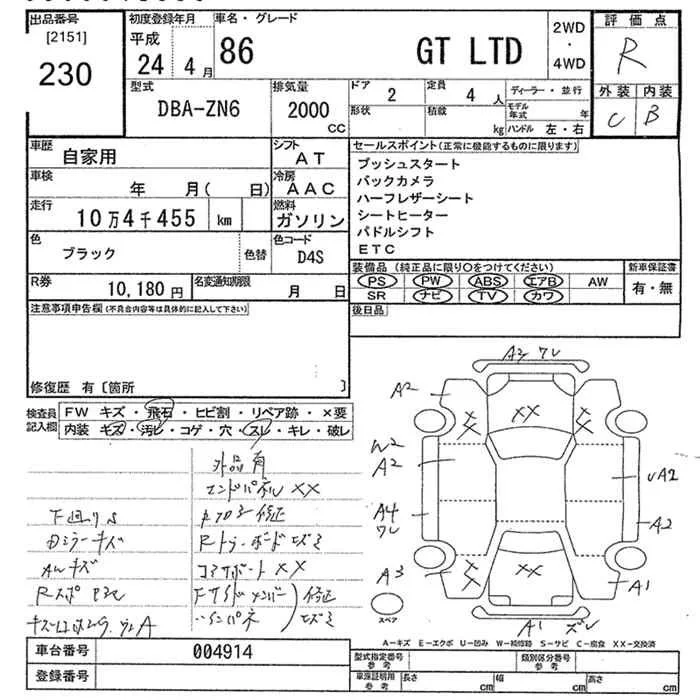 出品番号
[2151]
230
初度登録年月
平成
24 4月
車名・グレード
86 GT LTD
2WD
・
4WD
評価点
R
外装 内装
C B
型式
DBA-ZN6
排気量
2000
CC
ドア 2
定員 4 人
ディーラー・並行
形状
積載 kg
モデル年式 年
ハンドル 左・右
車歴 自家用
シフト AT
車検 年 月( 日)
冷房 AAC
走行 10万4千455 km
燃料 ガソリン
色 ブラック
色替
色コード D4S
R券 10,180円
名変通知期限 月 日
セールスポイント(正常に機能するものに限ります)
プッシュスタート
バックカメラ
ハーフレザーシート
シートヒーター
パドルシフト
ETC
装備品(純正品に限り○をつけてください)
新車保証書
PS PW ABS エアB AW
有・無
SR ナビ TV カワ
後日品
注意事項申告欄(不具合内容等は具体的に記入して下さい)
修復歴 有[箇所 ]
検査員
記入欄
FW キズ・飛石・ヒビ割・リペア跡・×要
内装・キズ・汚レ・コゲ・穴・スレ・キレ・破レ
外品有
エンドパネル XX
下回りS
修正
Dミラーキズ
AWキズ
コアサポート XX
修正
A3 ワレ
A2
XX
W2
A2
UA2
A4
ワレ
A2
A3
XX
A1
A1 ズレ
スペア
A-キズ E-エクボ U-凹み W-補修跡 S-サビ C-腐食 XX-交換済
車台番号 004914
登録番号
型式指定番号
参考
類別区分番号
参考
車庫証明用
参考
長さ cm
幅 cm
高さ cm